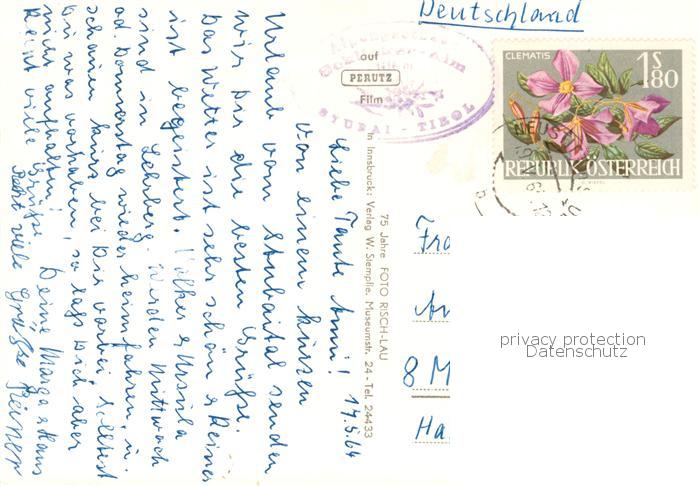 Liebe Tante Anni! 17.5.64
Von einem kurzen
Urlaub vom Stubaital senden
wir Dir die besten Grüße.
Das Wetter ist sehr schön & Reiner
ist begeistert. Volker & Ursula
sind in Lehrberg. Werden Mittwoch
od. Donnerstag wieder heimfahren, u.
schauen kurz bei Dir vorbei. Solltest
Du was vorhaben, so lass Dich aber
nicht aufhalten!
Recht viele Grüße Deine Marga & Hans
Recht viele Grüße Reiner
75 Jahre FOTO RISCH-LAU
In Innsbruck: Verlag W. Stempfle, Museumstr. 24 - Tel. 24433
auf
PERUTZ
Film
STUBAI - TIROL
Deutschland
CLEMATIS
1S80
REPUBLIK ÖSTERREICH
Fra
8 M
Ha
privacy protection
Datenschutz